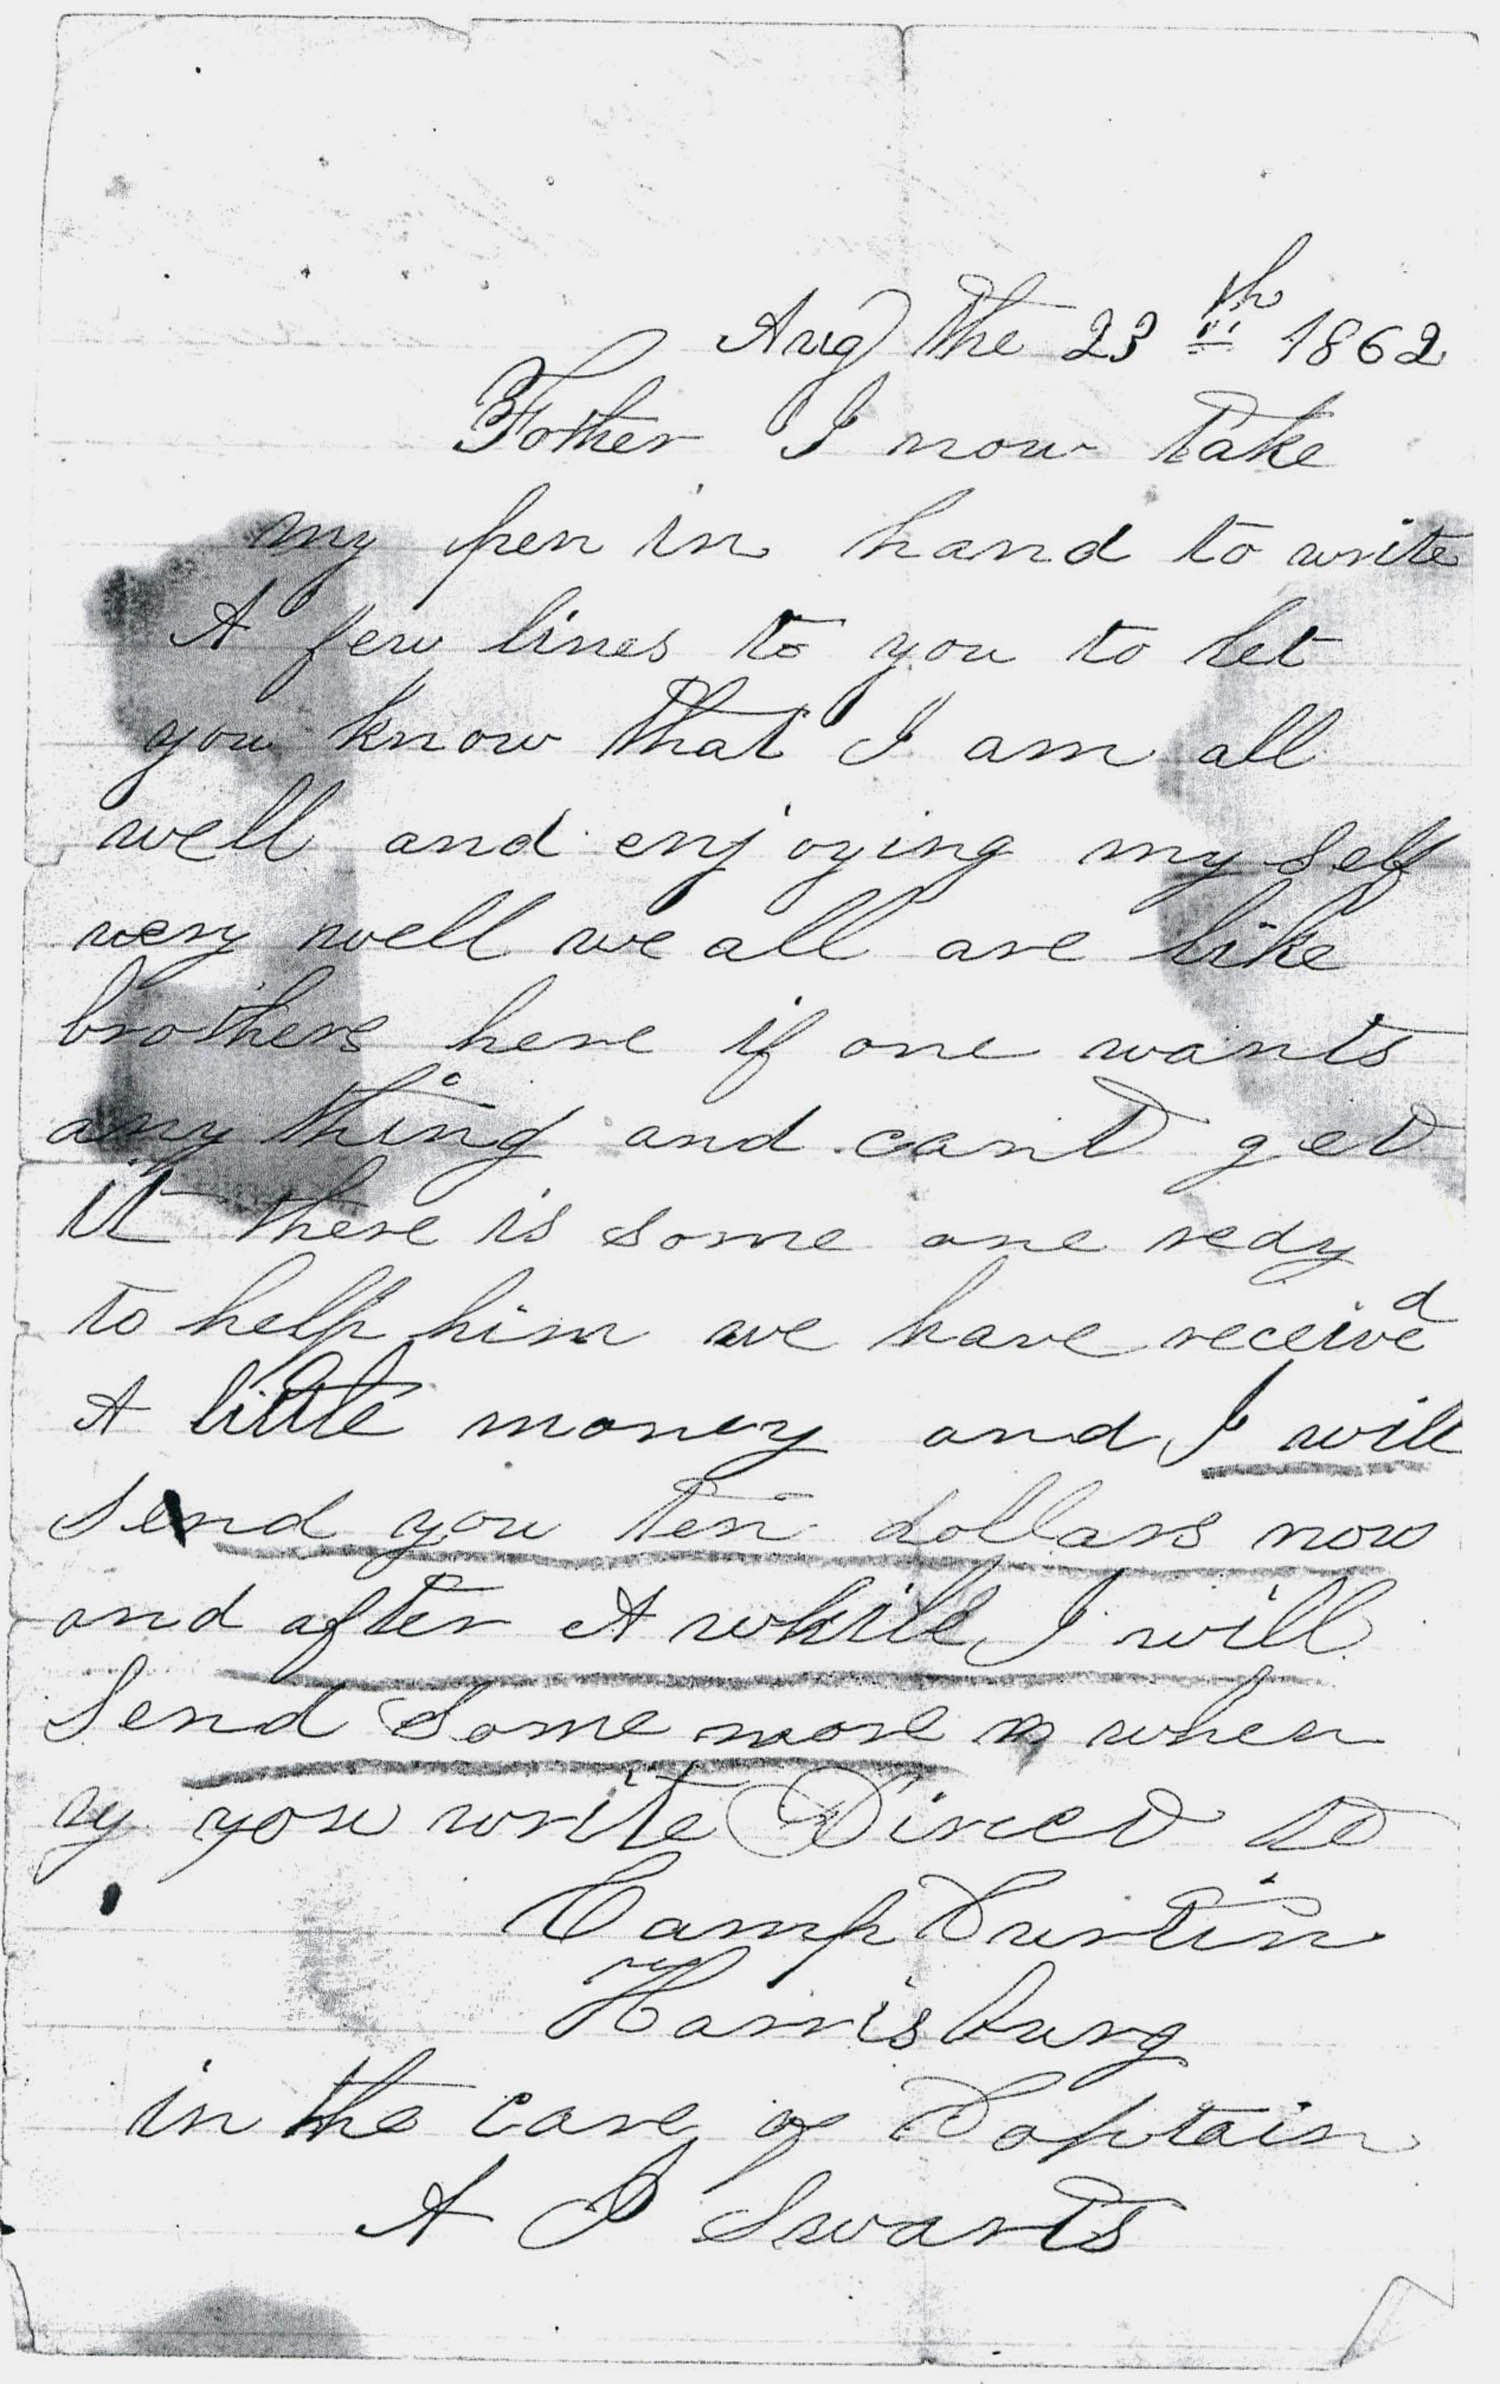 Aug the 23th 1862
Father I now take
my pen in hand to write
A few lines to you to let
you know that I am all
well and enjoying my self
very well we all are like
brothers here if one wants
any thing and cant get
it there is some one redy
to help him we have received
A little money and I will
send you ten dollars now
and after A while I will
send some more when
ry you write Direct to
Camp Curtin
Harrisburg
in the care of Captain
A J Swarts